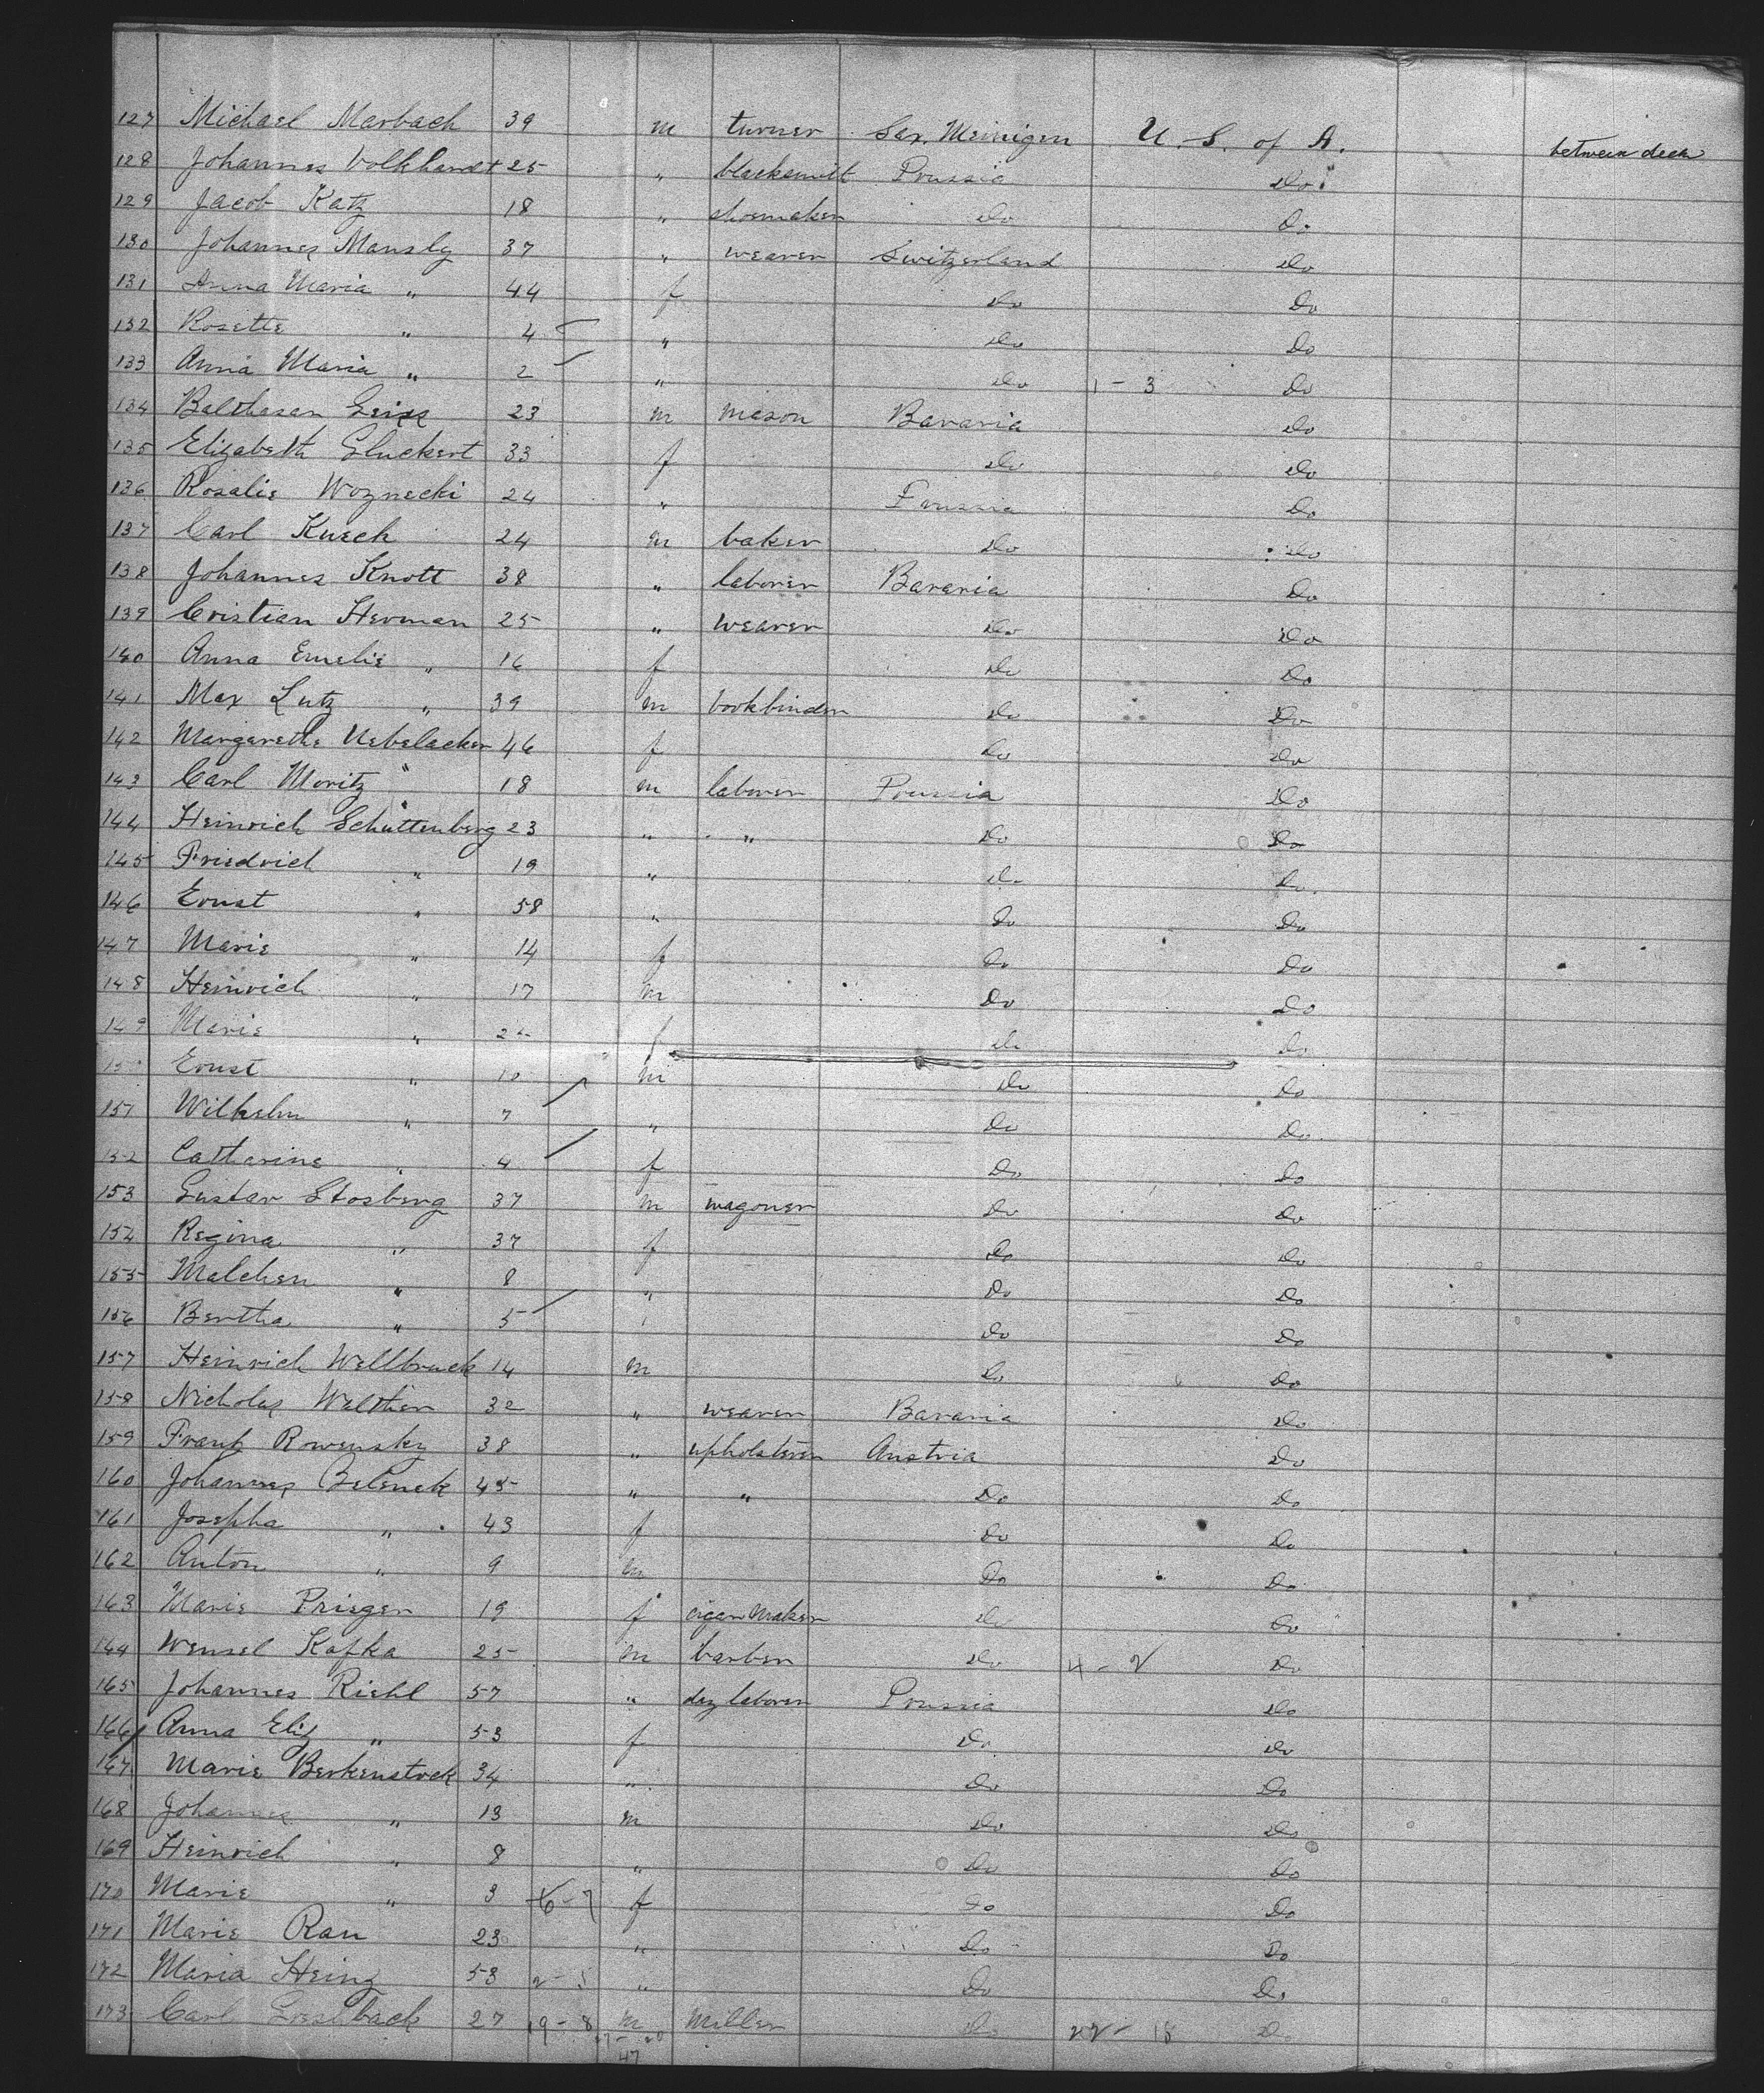 127 Michael Marbach 39 m turner Sax. Meinigen U. S. of A. between deck
128 Johannes Volkhardt 25 " blacksmith Prussia Do
129 Jacob Katz 18 " shoemaker Do Do
130 Johannes Mansly 37 " weaver Switzerland Do
131 Anna Maria " 44 f Do Do
132 Rosette " 4 " Do Do
133 Anna Maria " 2 " Do 1 - 3 Do
134 Balthasar 23 m mason Bavaria Do
135 Elizabeth Gluckert 33 f Do Do
136 Rosalie Woznecki 24 " Prussia Do
137 Carl Kueck 24 m baker Do Do
138 Johannes Knott 38 " laborer Bavaria Do
139 Cristian Herman 25 " weaver Do Do
140 Anna Emelie " 16 f Do Do
141 Max Lutz " 39 m bookbinder Do Do
142 Margarethe Uebelacker 46 f Do Do
143 Carl Moritz " 18 m laborer Prussia Do
144 Heinrich Schuttenberg 23 " " Do Do
145 Friedrich " 19 " Do Do
146 Ernst " 58 " Do Do
147 Marie " 14 f Do Do
148 Heinrich " 17 m Do Do
149 Marie " f Do Do
Ernst " 10 m Do Do
151 Wilhelm " 7 " Do Do
152 Catharine " 4 f Do Do
153 Gustav Stosberg 37 m wagoner Do Do
154 Regina " 37 f Do Do
155 Malchen " 8 " Do Do
156 Bertha " 5 " Do Do
157 Heinrich Wellbrock 14 m Do Do
158 Nicholas Walther 32 " weaver Bavaria Do
159 Frantz Rowensky 38 " upholsterer Austria Do
160 Johannes Belenek 45 " " Do Do
161 Josepha " 43 f Do Do
162 Anton " 9 m Do Do
163 Marie Prieger 19 f cigar maker Do Do
164 Wensel Kafka 25 m barber Do 4 - 2 Do
165 Johannes Riehl 57 " day laborer Prussia Do
166 Anna Eliz " 53 f Do Do
167 Marie Berkenstock 34 " Do Do
168 Johannes " 13 m Do Do
169 Heinrich " 8 " Do Do
170 Marie " 3 6 - 7 f Do Do
171 Marie Rau 23 " Do Do
172 Maria Heinz 53 2 - 5 " Do Do
173 Carl 27 19 - 8 m miller Do 22 - 18 Do
47